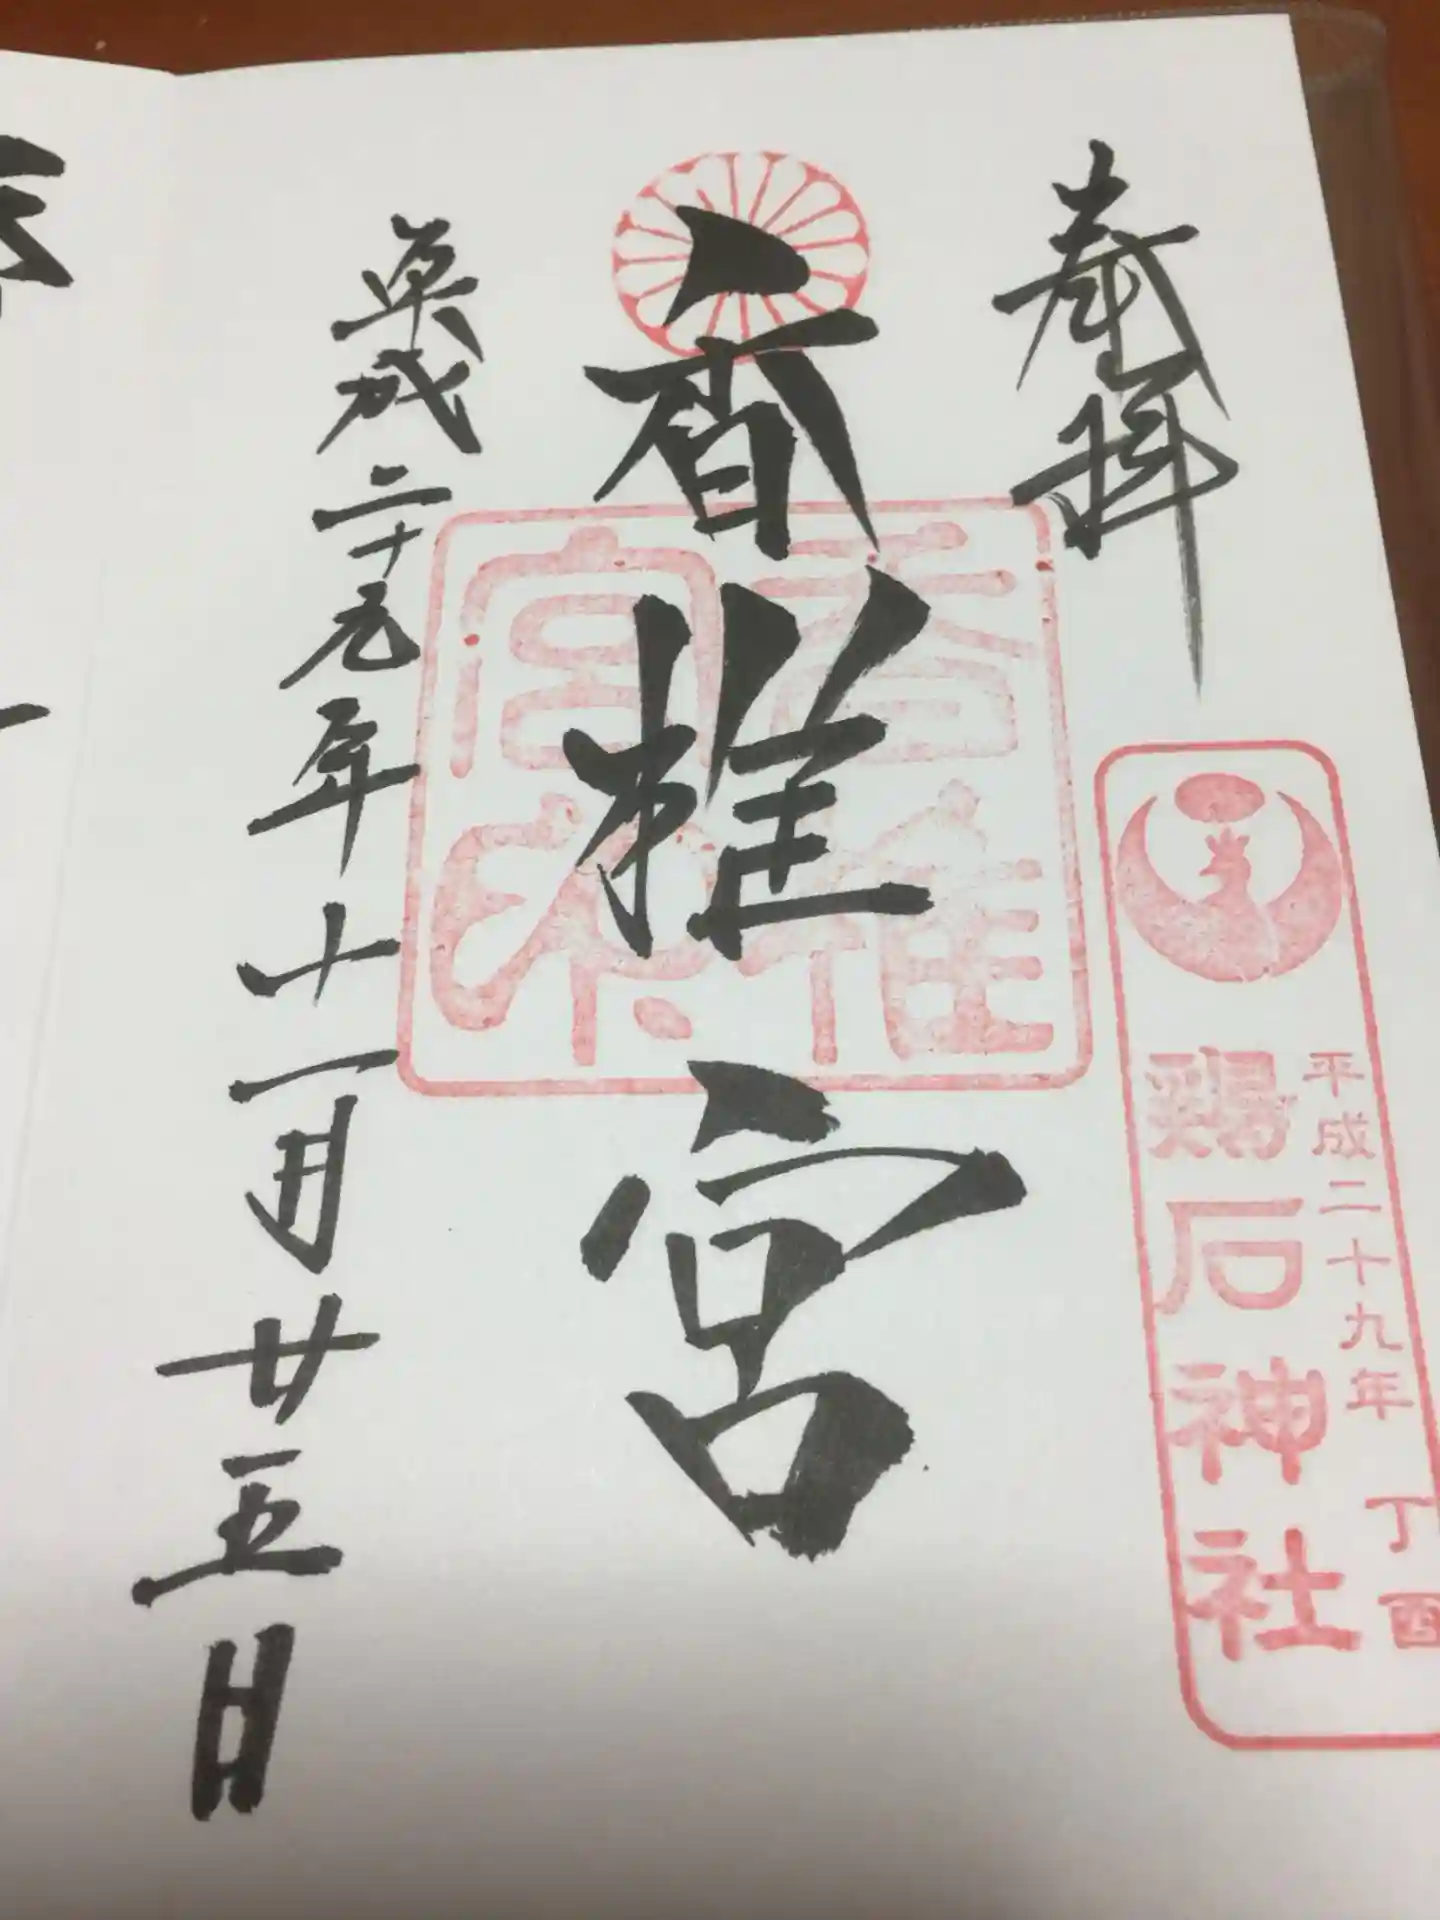 奉拝
平成二十九年 丁酉
鶏石神社
香椎宮
香椎宮印
平成二十九年十一月廿五日